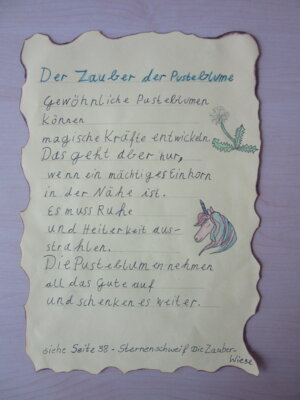 Der Zauber der Pusteblume
Gewöhnliche Pusteblumen
können
magische Kräfte entwickeln.
Das geht aber nur,
wenn ein mächtiges Einhorn
in der Nähe ist.
Es muss Ruhe
und Heiterkeit aus-
strahlen.
Die Pusteblumen nehmen
all das Gute auf
und schenken es weiter.
siehe Seite 38 - Sternenschweif Die Zauber-
Wiese